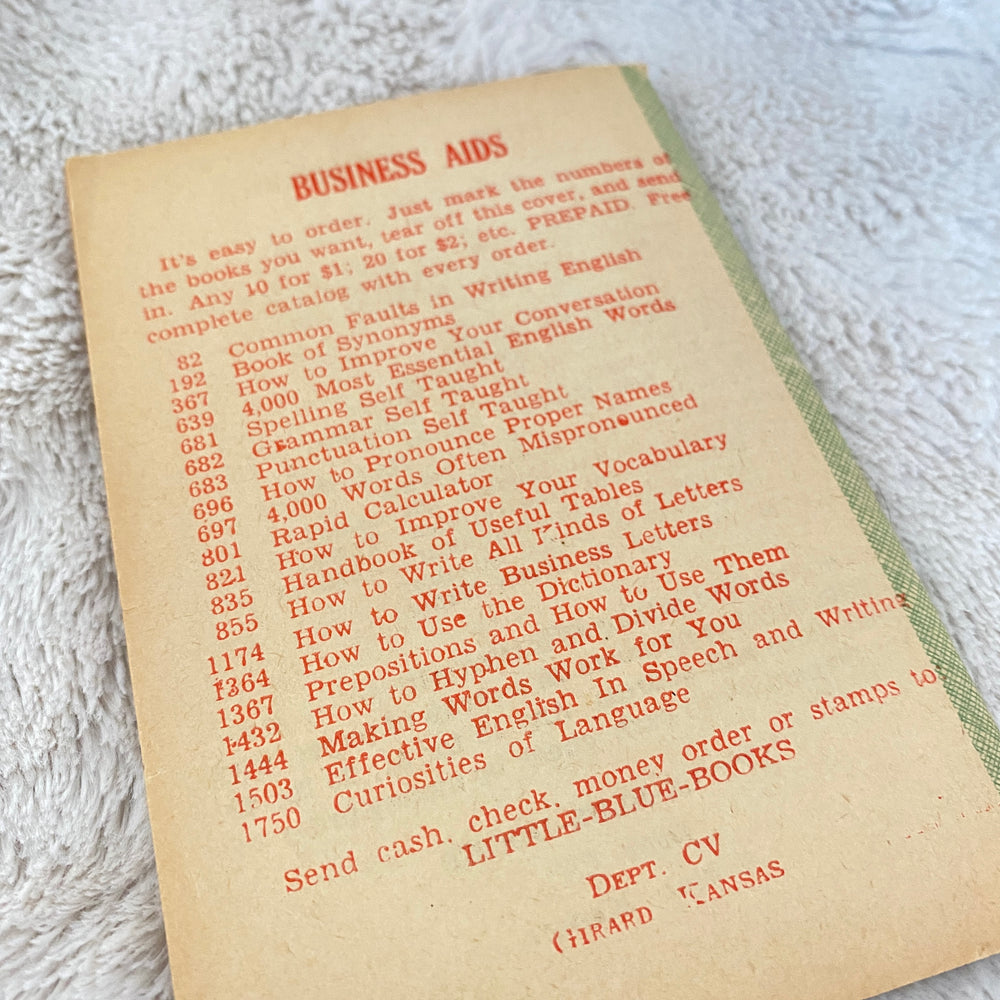 BUSINESS AIDS
It's easy to order. Just mark the numbers of
the books you want, tear off this cover, and send
in. Any 10 for $1; 20 for $2; etc. PREPAID Free
complete catalog with every order.
82 Common Faults in Writing English
192 Book of Synonyms
367 How to Improve Your Conversation
639 4,000 Most Essential English Words
681 Spelling Self Taught
682 Grammar Self Taught
683 Punctuation Self Taught
696 How to Pronounce Proper Names
697 4,000 Words Often Mispronounced
801 Rapid Calculator
821 How to Improve Your Vocabulary
835 Handbook of Useful Tables
855 How to Write All Kinds of Letters
1174 How to Write Business Letters
1364 How to Use the Dictionary
1367 Prepositions and How to Use Them
1432 How to Hyphen and Divide Words
1444 Making Words Work for You
1503 Effective English In Speech and Writing
1750 Curiosities of Language
Send cash, check, money order or stamps to
LITTLE-BLUE-BOOKS
DEPT. CV
GIRARD KANSAS